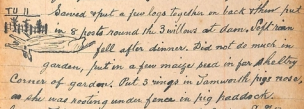 TU 11 Sawed & put a few logs together on back & then put
in 8 posts round the 3 willows at dam. Soft rain
fell after dinner. Did not do much in
garden, put in a few maize seed in far
corner of garden. Put 3 rings in Tamworth pigs nose,
as she was rooting under fence in pig paddock.